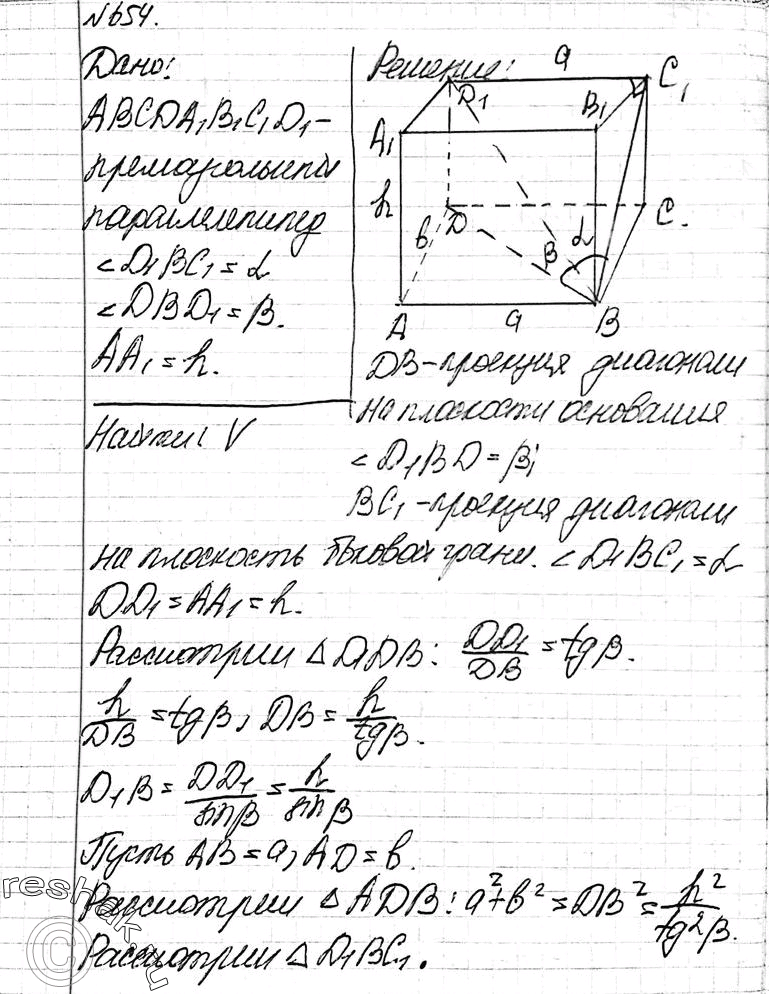 №654.
Дано:
ABCDA₁B₁C₁D₁-
прямоугольный
параллелепипед
∠D₁BC₁=α
∠DBD₁=β.
AA₁=h.
Найти: V
Решение:
a
D₁
B₁
C₁
A₁
h
в
D
C
β
α
A
a
B
DB-проекция диагонали
на плоскости основания
∠D₁BD=β;
BC₁-проекция диагонали
на плоскость боковой грани. ∠D₁BC₁=α
DD₁=AA₁=h.
Рассмотрим △D₁DB: DD₁/DB=tgβ.
h/DB=tgβ, DB=h/tgβ.
D₁B=DD₁/sinβ=h/sinβ
Пусть AB=a, AD=в.
Рассмотрим △ADB: a²+в²=DB²=h²/tg²β.
Рассмотрим △D₁BC₁.
reshak.ru
©